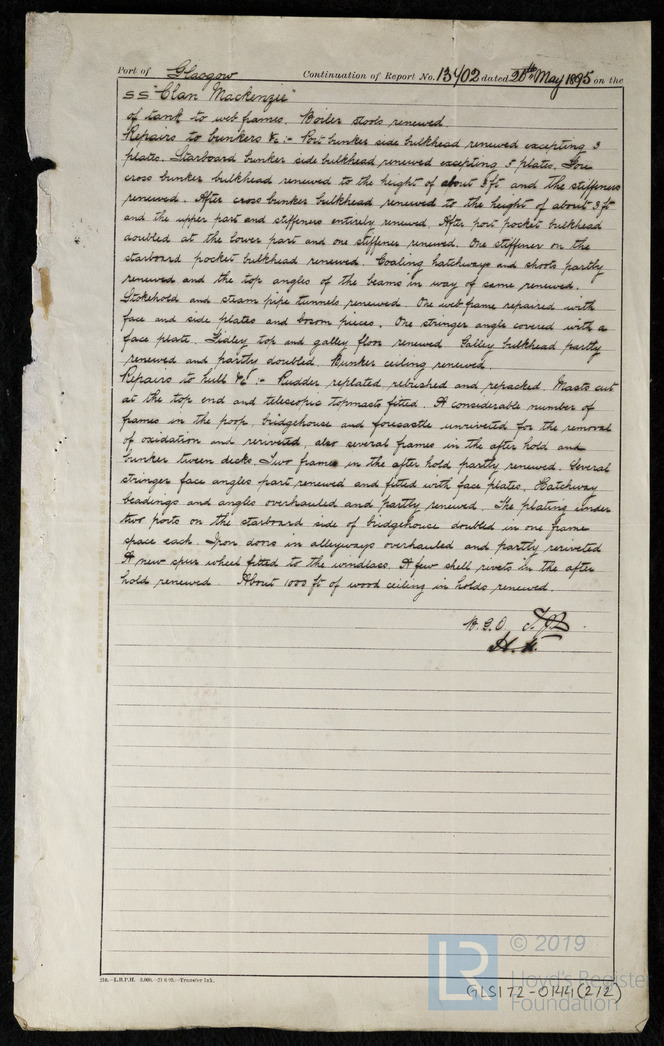 Port of Glasgow Continuation of Report No. 13402 dated 20th May 1895 on the
SS "Clan Mackenzie"
of tank to web frames. Boiler stools renewed
Repairs to bunkers &c :- Port bunker side bulkhead renewed excepting 3
plates. Starboard bunker side bulkhead renewed excepting 5 plates. Fore
cross bunker bulkhead renewed to the height of about 3 ft and the stiffeners
renewed. After cross bunker bulkhead renewed to the height of about 3 ft
and the upper part and stiffeners entirely renewed. After port pocket bulkhead
doubled at the lower part and one stiffener renewed. One stiffener on the
starboard pocket bulkhead renewed. Coaling hatchways and shoots partly
renewed and the top angles of the beams in way of same renewed.
Stokehold and steam pipe tunnels renewed. One web frame repaired with
face and side plates and bosom pieces. One stringer angle covered with a
face plate. Fidley top and galley floor renewed. Galley bulkhead partly
renewed and partly doubled. Bunker ceiling renewed.
Repairs to hull &c :- Rudder replated rebushed and repacked. Masts cut
at the top end and telescopic topmasts fitted. A considerable number of
frames in the poop, bridgehouse and forecastle unriveted for the removal
of oxidation and reriveted, also several frames in the after hold and
bunker tween decks. Two frames in the after hold partly renewed. Several
stringer face angles part renewed and fitted with face plates. Hatchway
beadings and angles overhauled and partly renewed. The plating under
two ports on the starboard side of bridgehouse doubled in one frame
space each. Iron doors in alleyways overhauled and partly reriveted
A new spur wheel fitted to the windlass. A few shell rivets in the after
hold renewed. About 1000 ft of wood ceiling in holds renewed.
H. K.
210.—L.R.P.H. 3,000.—Transfer Ink.
LR © 2019
Lloyd's Register
Foundation
GLS172-0144(2/2)